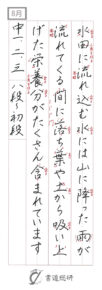 8月
水田に流れ込む水には山に降った雨が
流れてくる間に落ち葉や土から吸い上
げた栄養分がたくさん含まれています
中一、二、三　八段〜初段
書道総研